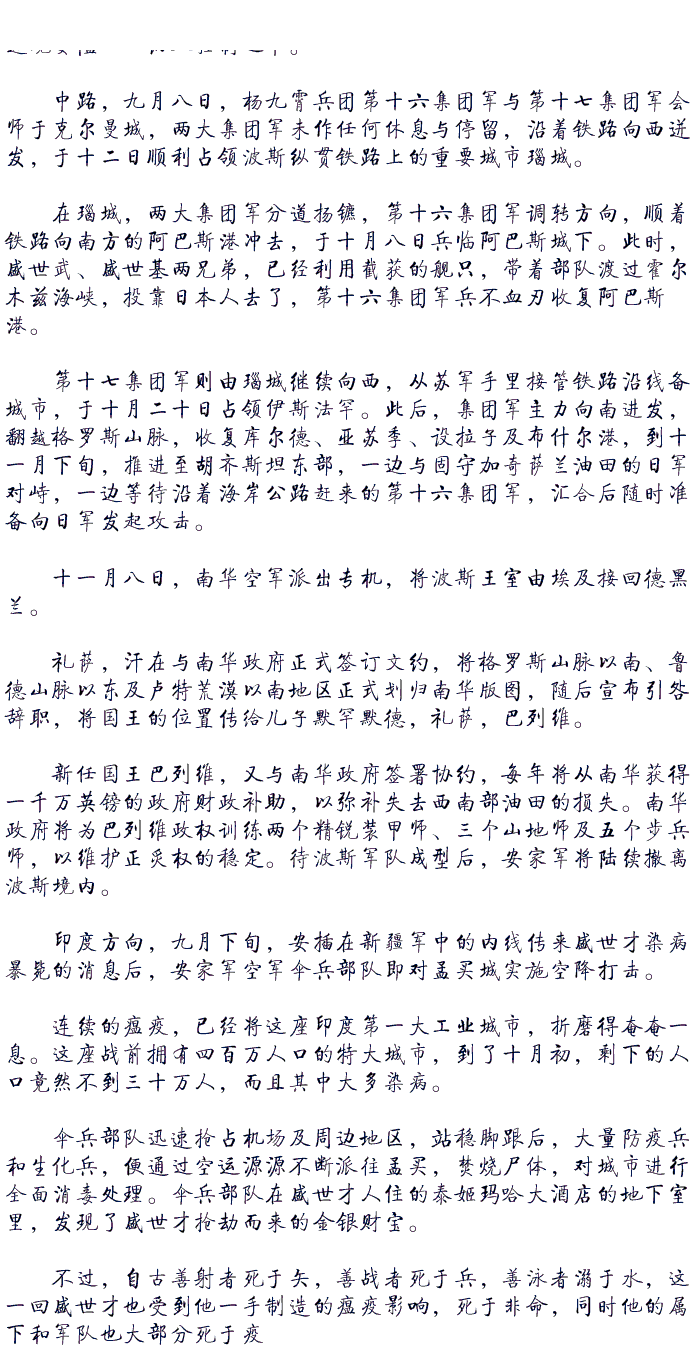 中路，九月八日，杨九霄兵团第十六集团军与第十七集团军会
师于克尔曼城，两大集团军未作任何休息与停留，沿着铁路向西迸
发，于十二日顺利占领波斯纵贯铁路上的重要城市瑙城。
在瑙城，两大集团军分道扬镳，第十六集团军调转方向，顺着
铁路向南方的阿巴斯港冲去，于十月八日兵临阿巴斯城下。此时，
盛世武、盛世基两兄弟，已经利用截获的舰只，带着部队渡过霍尔
木兹海峡，投靠日本人去了，第十六集团军兵不血刃收复阿巴斯
港。
第十七集团军则由瑙城继续向西，从苏军手里接管铁路沿线各
城市，于十月二十日占领伊斯法罕。此后，集团军主力向南进发，
翻越格罗斯山脉，收复库尔德、亚苏季、设拉子及布什尔港，到十
一月下旬，推进至胡齐斯坦东部，一边与固守加奇萨兰油田的日军
对峙，一边等待沿着海岸公路赶来的第十六集团军，汇合后随时准
备向日军发起攻击。
十一月八日，南华空军派出专机，将波斯王室由埃及接回德黑
兰。
礼萨，汗在与南华政府正式签订文约，将格罗斯山脉以南、鲁
德山脉以东及卢特荒漠以南地区正式划归南华版图，随后宣布引咎
辞职，将国王的位置传给儿子默罕默德，礼萨，巴列维。
新任国王巴列维，又与南华政府签署协约，每年将从南华获得
一千万英镑的政府财政补助，以弥补失去西南部油田的损失。南华
政府将为巴列维政权训练两个精锐装甲师、三个山地师及五个步兵
师，以维护正炙权的稳定。待波斯军队成型后，安家军将陆续撤离
波斯境内。
印度方向，九月下旬，安插在新疆军中的内线传来盛世才染病
暴毙的消息后，安家军空军伞兵部队即对孟买城实施空降打击。
连续的瘟疫，已经将这座印度第一大工业城市，折磨得奄奄一
息。这座战前拥有四百万人口的特大城市，到了十月初，剩下的人
口竟然不到三十万人，而且其中大多染病。
伞兵部队迅速抢占机场及周边地区，站稳脚跟后，大量防疫兵
和生化兵，便通过空运源源不断派往孟买，焚烧尸体，对城市进行
全面消毒处理。伞兵部队在盛世才人住的泰姬玛哈大酒店的地下室
里，发现了盛世才抢劫而来的金银财宝。
不过，自古善射者死于矢，善战者死于兵，善泳者溺于水，这
一回盛世才也受到他一手制造的瘟疫影响，死于非命，同时他的属
下和军队也大部分死于疫